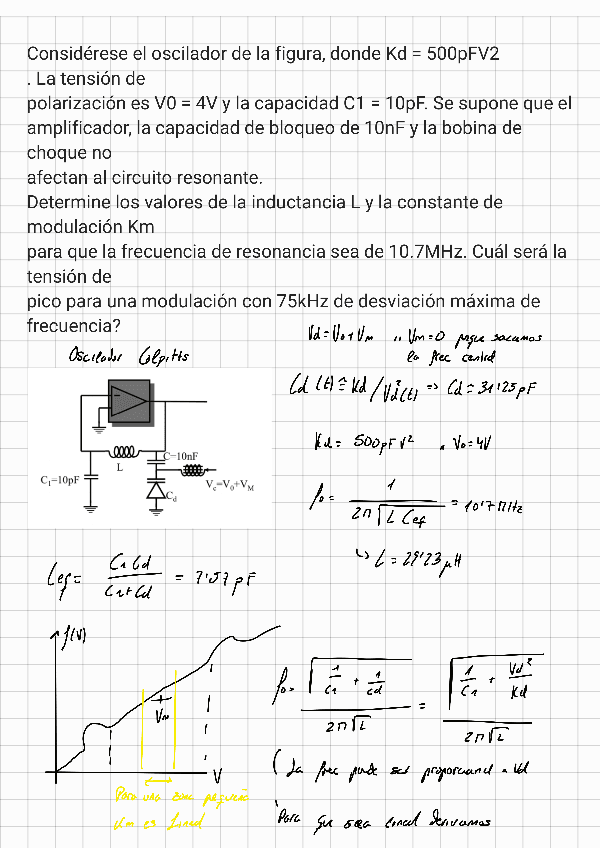 Considérese el oscilador de la figura, donde Kd = 500pFV2
. La tensión de
polarización es V0 = 4V y la capacidad C1 = 10pF. Se supone que el
amplificador, la capacidad de bloqueo de 10nF y la bobina de
choque no
afectan al circuito resonante.
Determine los valores de la inductancia L y la constante de
modulación Km
para que la frecuencia de resonancia sea de 10.7MHz. Cuál será la
tensión de
pico para una modulación con 75kHz de desviación máxima de
frecuencia?
Vd = V0 + Vm
Vm=0 porque sacamos
la frec central
Oscilador Colpitts
Cd (t) ≅ Kd / Vd²(t) => Cd = 31'25 pF
Kd = 500pF V² . V0=4V
C=10nF
L
C₁=10pF
Cd
Vc=V0+VM
f0 = 1 / 2π√L Cef = 10'7 MHz
↳ L = 29'23 μH
Cef = C1 Cd / C1 + Cd = 7'57 pF
f(V)
Vm
V
f0 = √(1/C1 + 1/Cd) / 2π√L = √(1/C1 + Vd²/Kd) / 2π√L
Para una zona pequeña
Vm es lineal
( La frec puede ser proporcional a Vd
Para que sea lineal derivamos